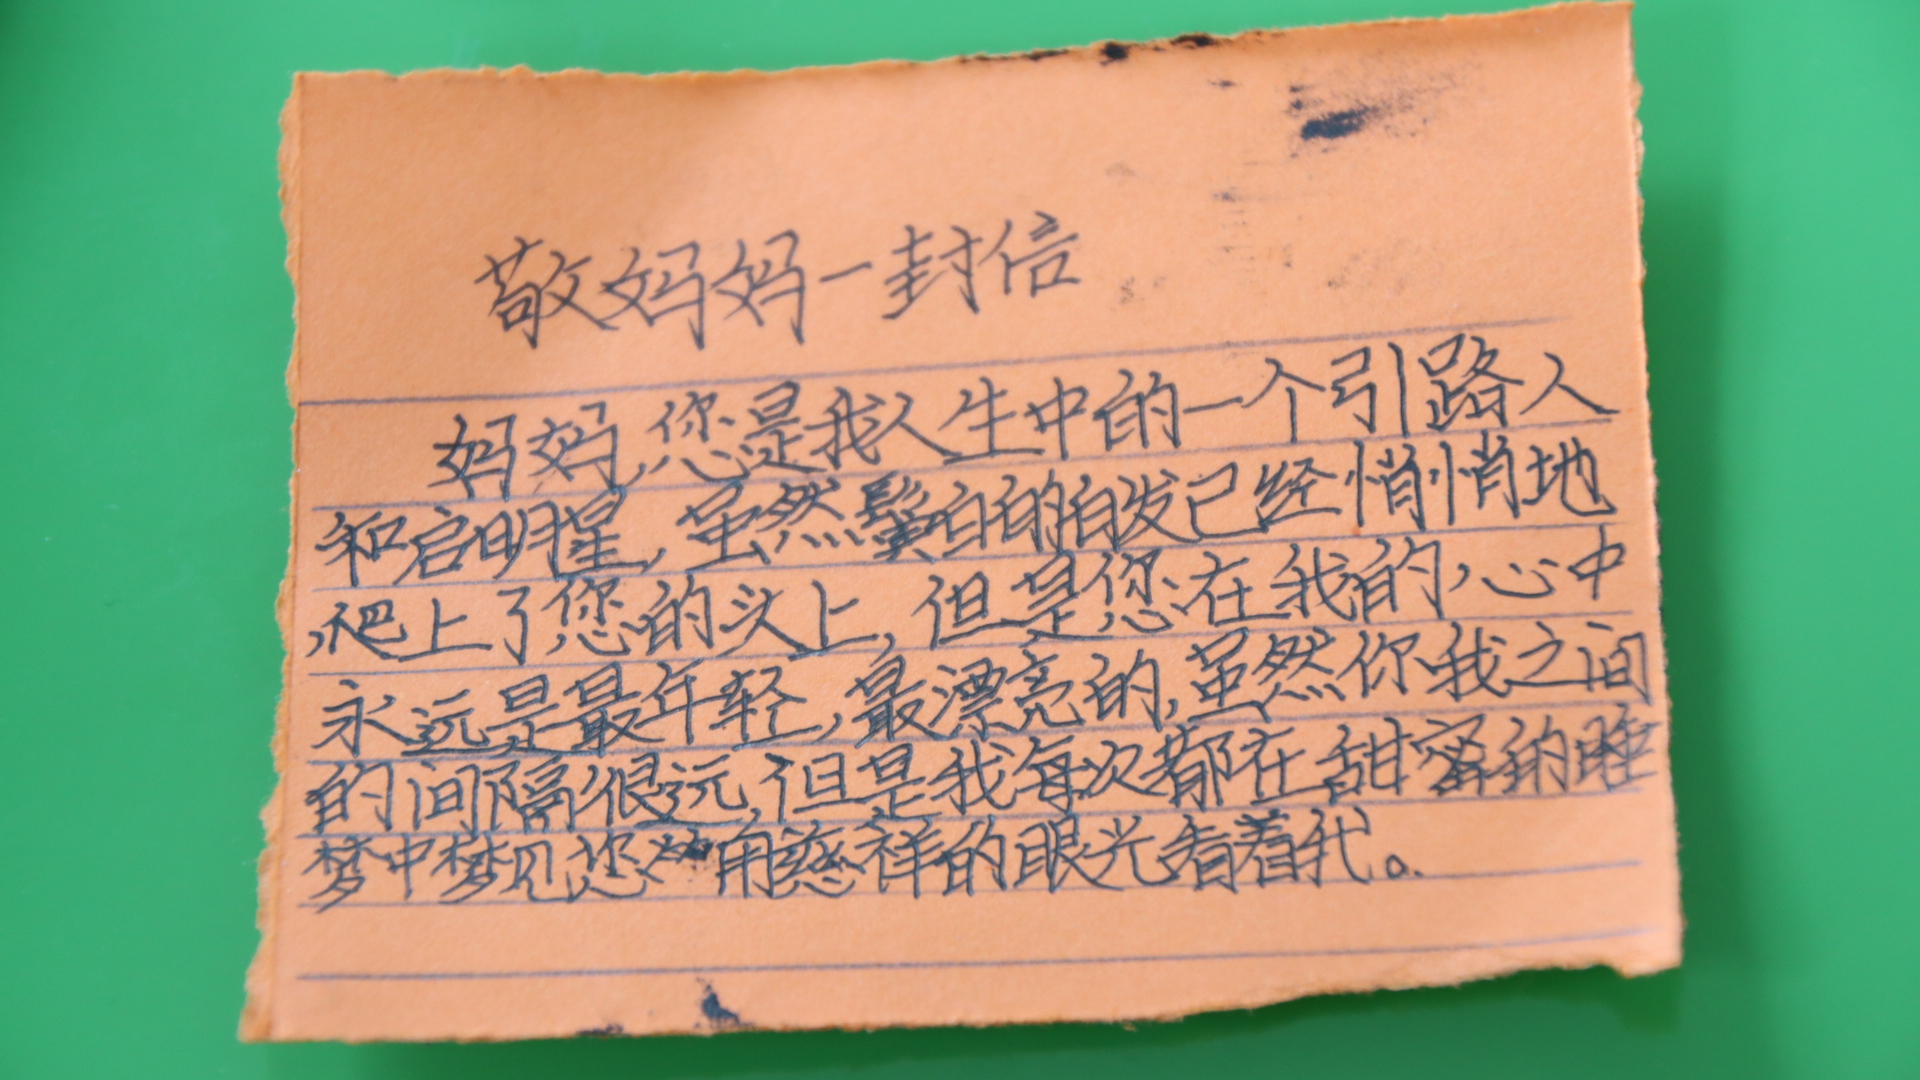 敬妈妈一封信
妈妈,您是我人生中的一个引路人
和启明星,虽然鬓白的白发已经悄悄地
爬上了您的头上,但是您在我的心中
永远是最年轻,最漂亮的,虽然你我之间
的间隔很远,但是我每次都在甜蜜的睡
梦中梦见您用慈祥的眼光看着我。